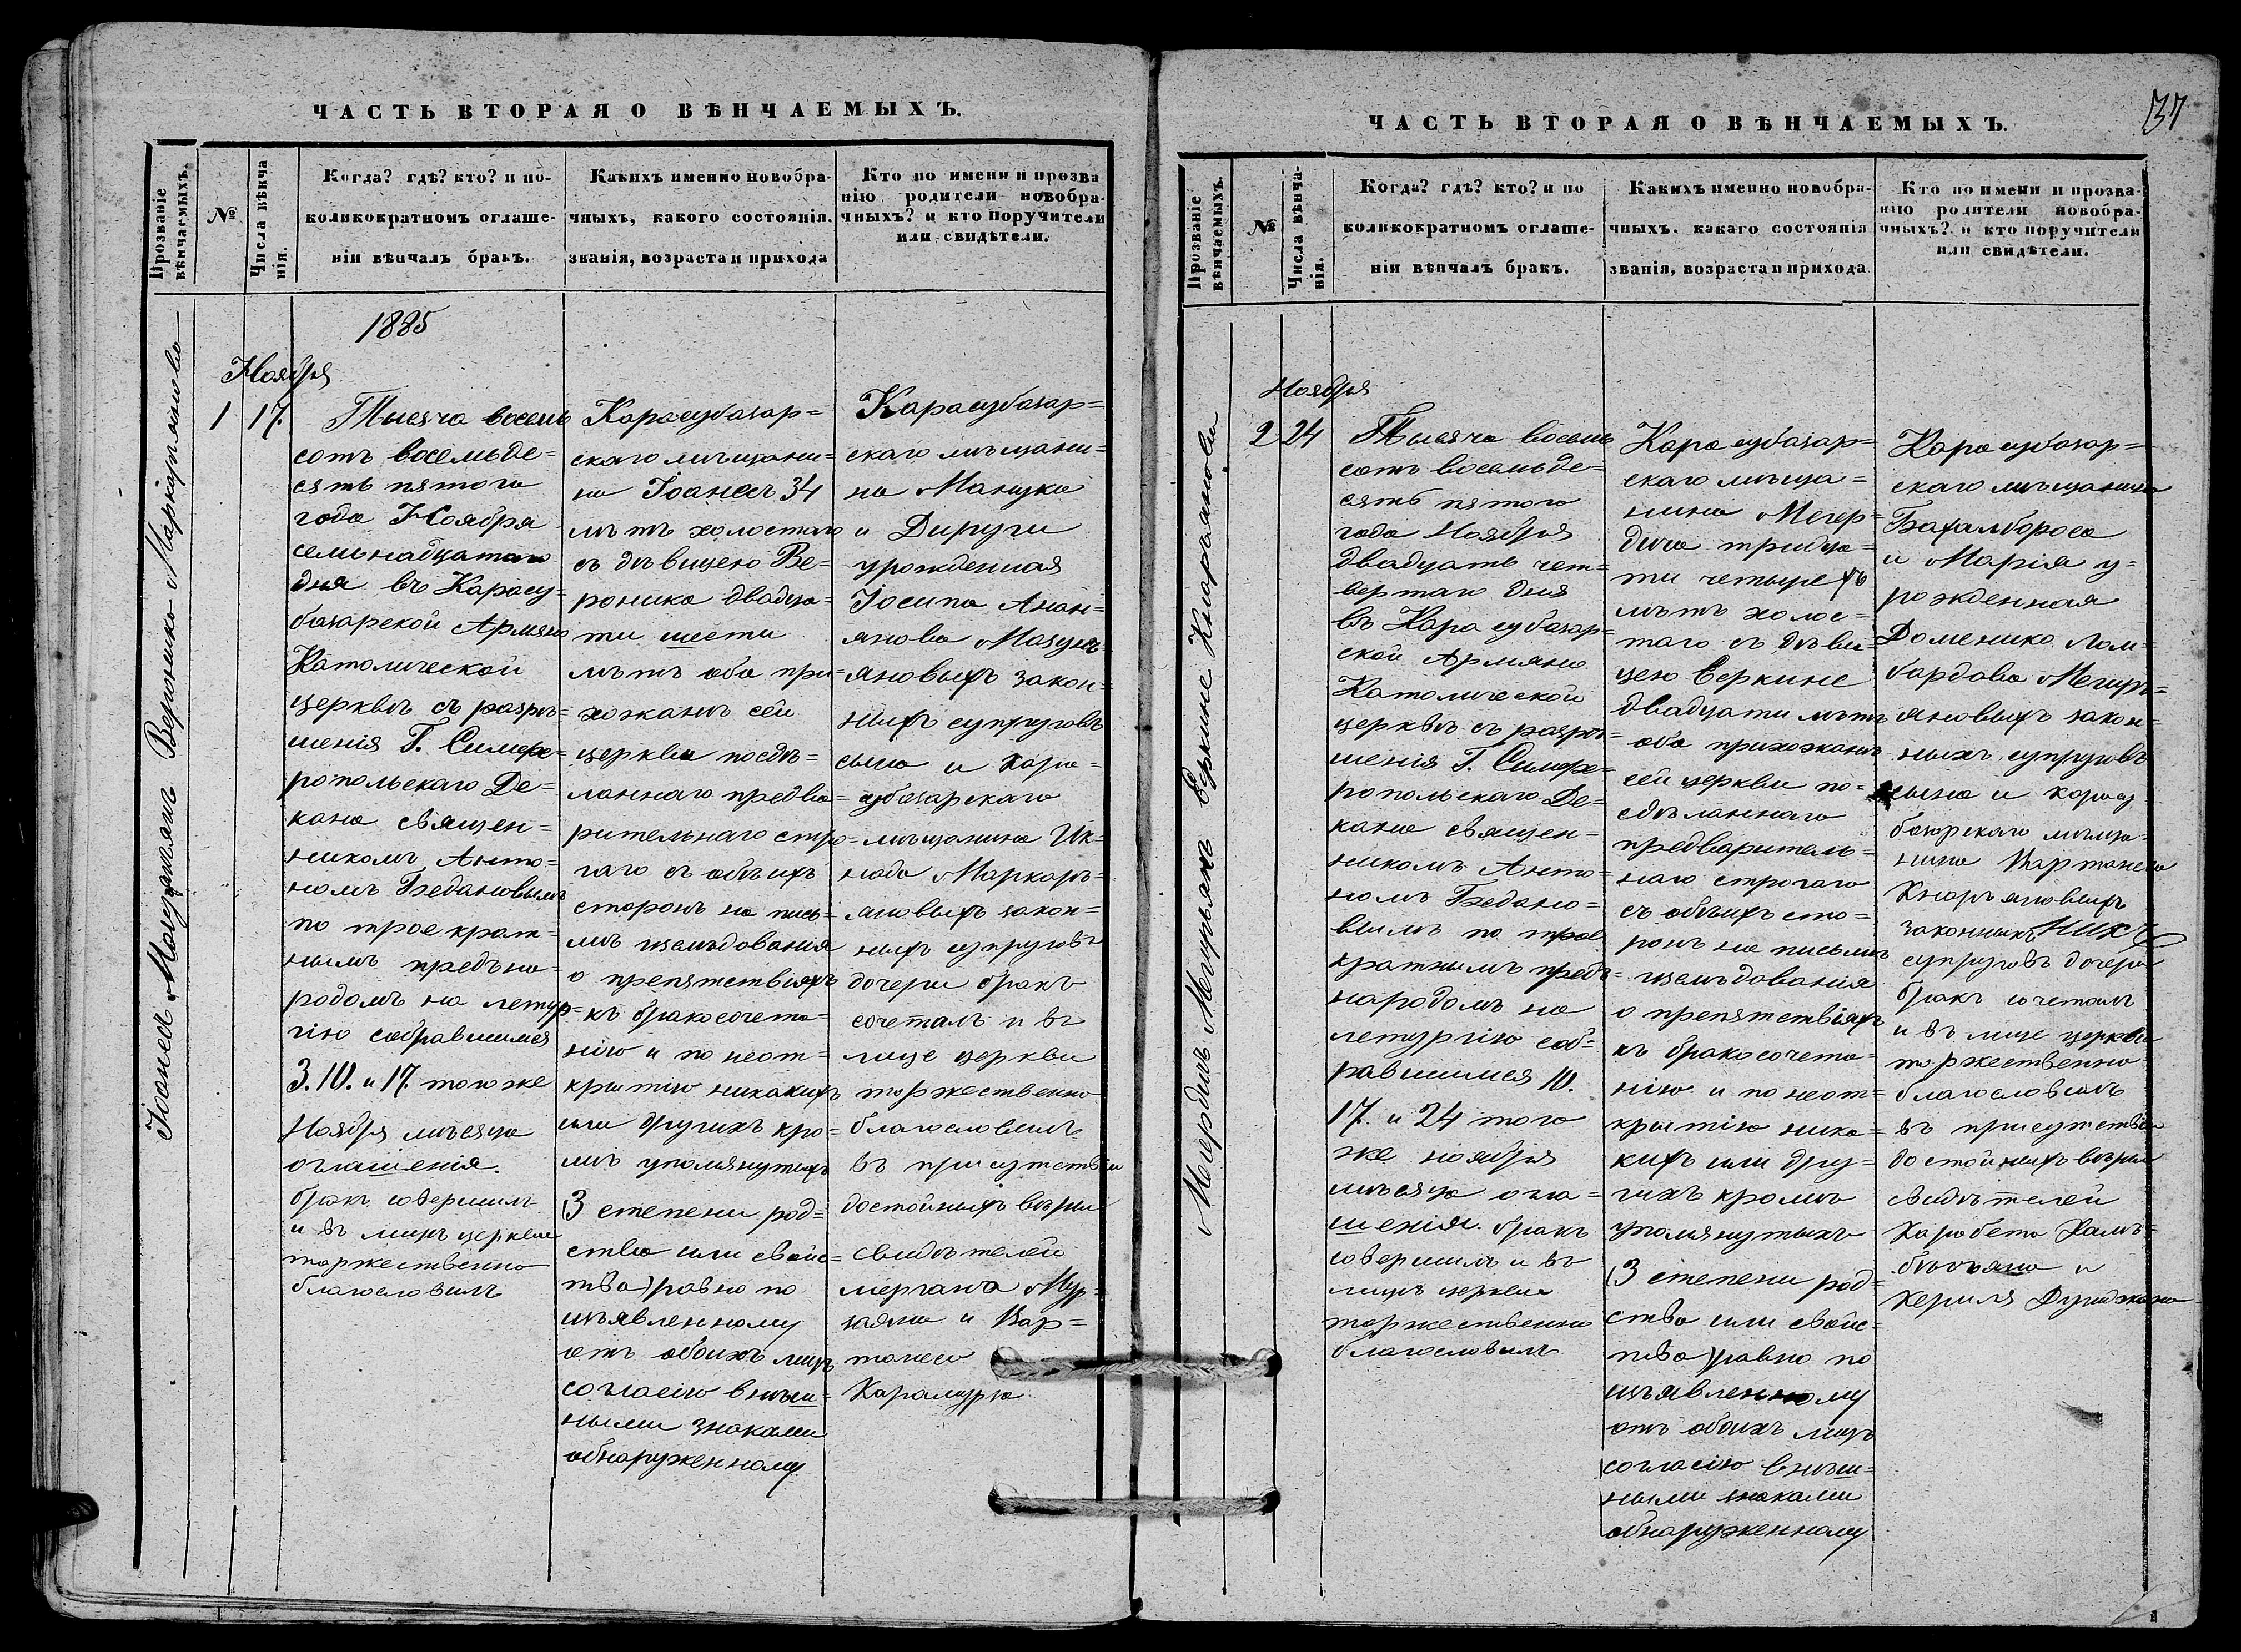 ЧАСТЬ ВТОРАЯ О ВѢНЧАЕМЫХЪ.
Прозваніе вѣнчаемыхъ.
№
Числа вѣнча
нія.
Когда? гдѣ? кто? и по-
коликократномъ оглаше-
ніи вѣнчалъ бракъ.
Какихъ именно новобра-
чныхъ, какого состоянія.
званія, возраста и прихода
Кто по имени и прозва
нію родители новобра-
чныхъ? и кто поручители
или свидѣтели.
1885
Ноября
1 17.
Тысяча восемь
сотъ восемьде=
сятъ пятого
года Ноября
семьнадцатаго
дня въ Карасу-
базарской Армяно
Католической
церквѣ съ разрѣ=
шенія Г. Симфе=
ропольскаго Де=
кана священ=
никомъ Анто=
номъ Бедановымъ
по трое крат=
нымъ предъ на=
родомъ на летур=
гію собравшимся
3. 10. и 17. того же
Ноября мѣсяца
оглашенія.
бракъ совершилъ
и въ лицѣ церкви
торжественно
благословилъ
Карасубазар=
скаго мѣщани=
на Іоанесъ 34
лѣтъ холостаго
съ дѣвицею Ве=
роника двадца=
ти шести
лѣтъ оба при=
хожанъ сей
церкви посдѣ=
ланнаго предва=
рительнаго стро=
гаго съ обѣихъ
сторонъ на пись=
мѣ изслѣдованія
о препятствіяхъ
къ бракосочета=
нію и по неот=
крытію никакихъ
или другихъ кро=
мѣ упомянутыхъ
(3 степени род=
ства или свойс=
тва) равно по
изъявленному
отъ обоихъ лицъ
согласію внѣш=
ными знаками
обнаруженному
Карасубазар=
скаго мѣщани=
на Манука
и Дируги
урожденная
Іосипа Анан=
янова
яновыхъ закон=
ныхъ супруговъ
сына и Кара=
субазарскаго
мѣщанина
Маркарь=
яновыхъ закон=
ныхъ супруговъ
дочери бракъ
сочеталъ и въ
лице церкви
торжественно
благословилъ
въ присутствіи
достойныхъ вѣры
свидѣтелей
и Вар=
танеса
Іоанесъ Вероника Маркарьянова
ЧАСТЬ ВТОРАЯ О ВѢНЧАЕМЫХЪ.
37
Прозваніе вѣнчаемыхъ.
№
Числа вѣнча-
нія.
Когда? гдѣ? кто? и по
коликократномъ оглаше-
ніи вѣнчалъ бракъ.
Какихъ именно новобра-
чныхъ. какаго состоянія
званія, возраста и прихода
Кто по имени и прозва-
нію родители новобра-
чныхъ? и кто поручители
или свидѣтели.
Ноября
2 24
Тысяча восемь
сотъ восемьде=
сятъ пятого
года Ноября
двадцать чет=
вертаго дня
въ Карасубазар=
ской Армяно
Католической
церквѣ съ разрѣ=
шенія Г. Симфе=
ропольскаго Де=
кана священ=
никомъ Анто=
номъ Бедано=
вымъ по трое
кратнымъ предъ=
народомъ на
летургію соб=
равшимся 10.
17. и 24 того
же ноября
мѣсяца огла=
шенія. бракъ
совершилъ и въ
лицѣ церкви
торжественно
благословилъ
Карасубазар=
скаго мѣща=
нина Мегер=
дича тридца=
ти четырехъ
лѣтъ холос=
таго съ дѣви=
цею Еркине
двадцати лѣтъ
оба прихожанъ
сей церкви по=
сдѣланнаго
предваритель=
наго строгаго
съ обѣихъ сто=
ронъ на письмѣ
изслѣдованія
о препятствіяхъ
къ бракосочета=
нію и по неот=
крытію ника=
кихъ или дру=
гихъ кромѣ
упомянутыхъ
(3 степени род=
ства или свойс=
тва) равно по
изъявленному
отъ обоихъ лицъ
согласію внѣш=
ными знаками
обнаруженному
Карасубазар=
скаго мѣщанина
и Марія у=
рожденная
Доменико Лом=
бардова
яновыхъ закон=
ныхъ супруговъ
сына и Карасу
базарскаго мѣща=
нина Вартанеса
Кнарьяновыхъ
законныхъ
супруговъ дочери
бракъ сочеталъ
и въ лице церкви
торжественно
благословилъ
въ присутствіи
достойныхъ вѣры
свидѣтелей
Карабета
и
Еркине Кнарьянова